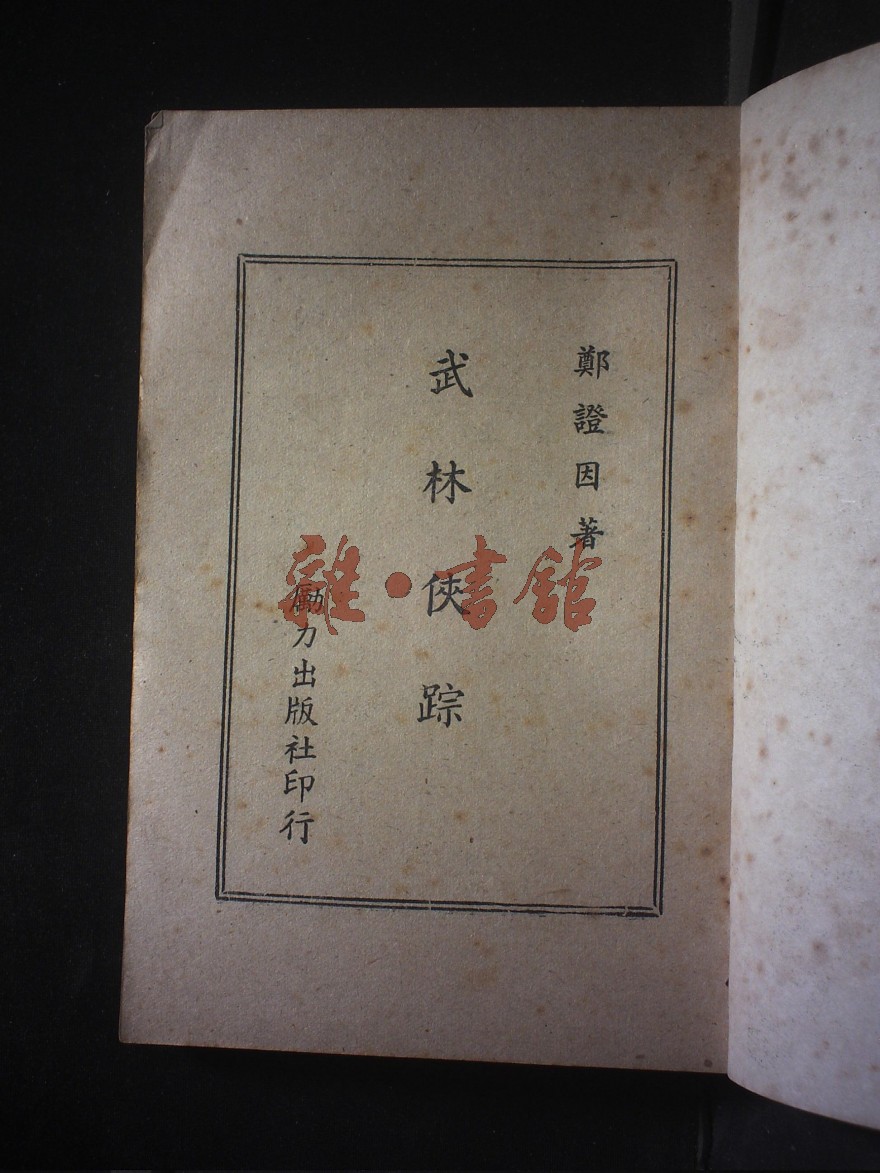 鄭證因著
武林俠踪
勵力出版社印行
雜·書館